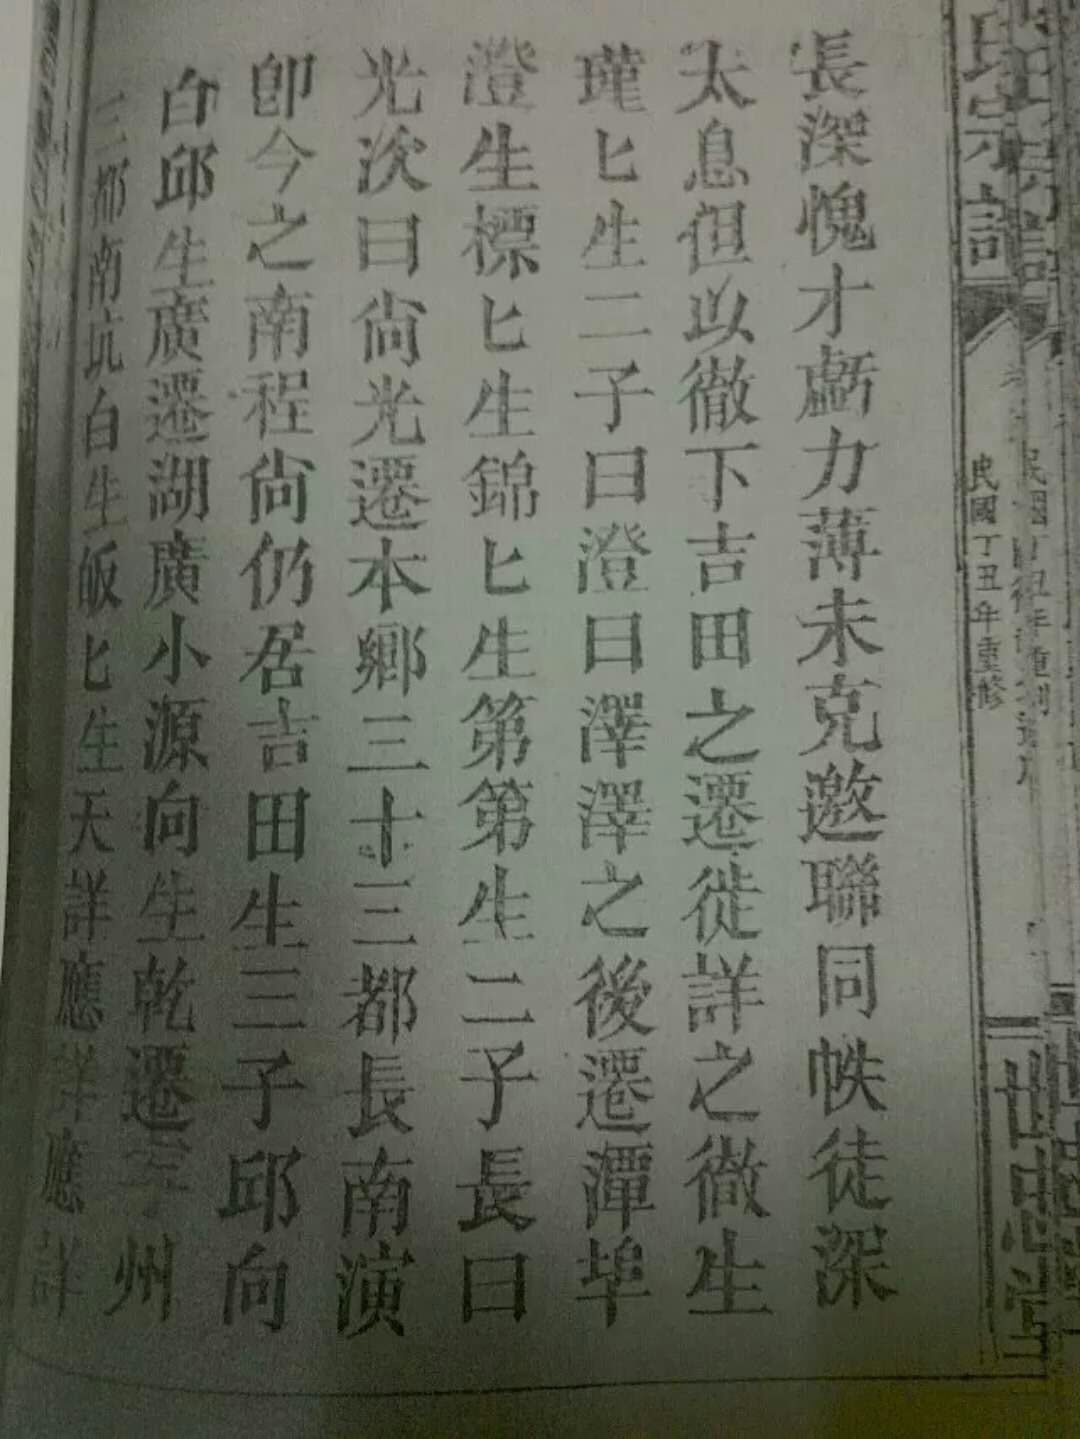 氏宗譜
民國丁丑年重修
世忠堂
長深愧才虧力薄未克邀聯同帙徒深
太息但以徹下吉田之遷徙詳之徹生
瑾匕生二子曰澄曰澤澤之後遷潭埠
澄生標匕生錦匕生第第生二子長曰
光次曰尙光遷本鄉三十三都長南演
卽今之南程尙仍居吉田生三子邱向
白邱生廣遷湖廣小源向生乾遷 州
三都南坑白生皈匕生天詳應詳應詳